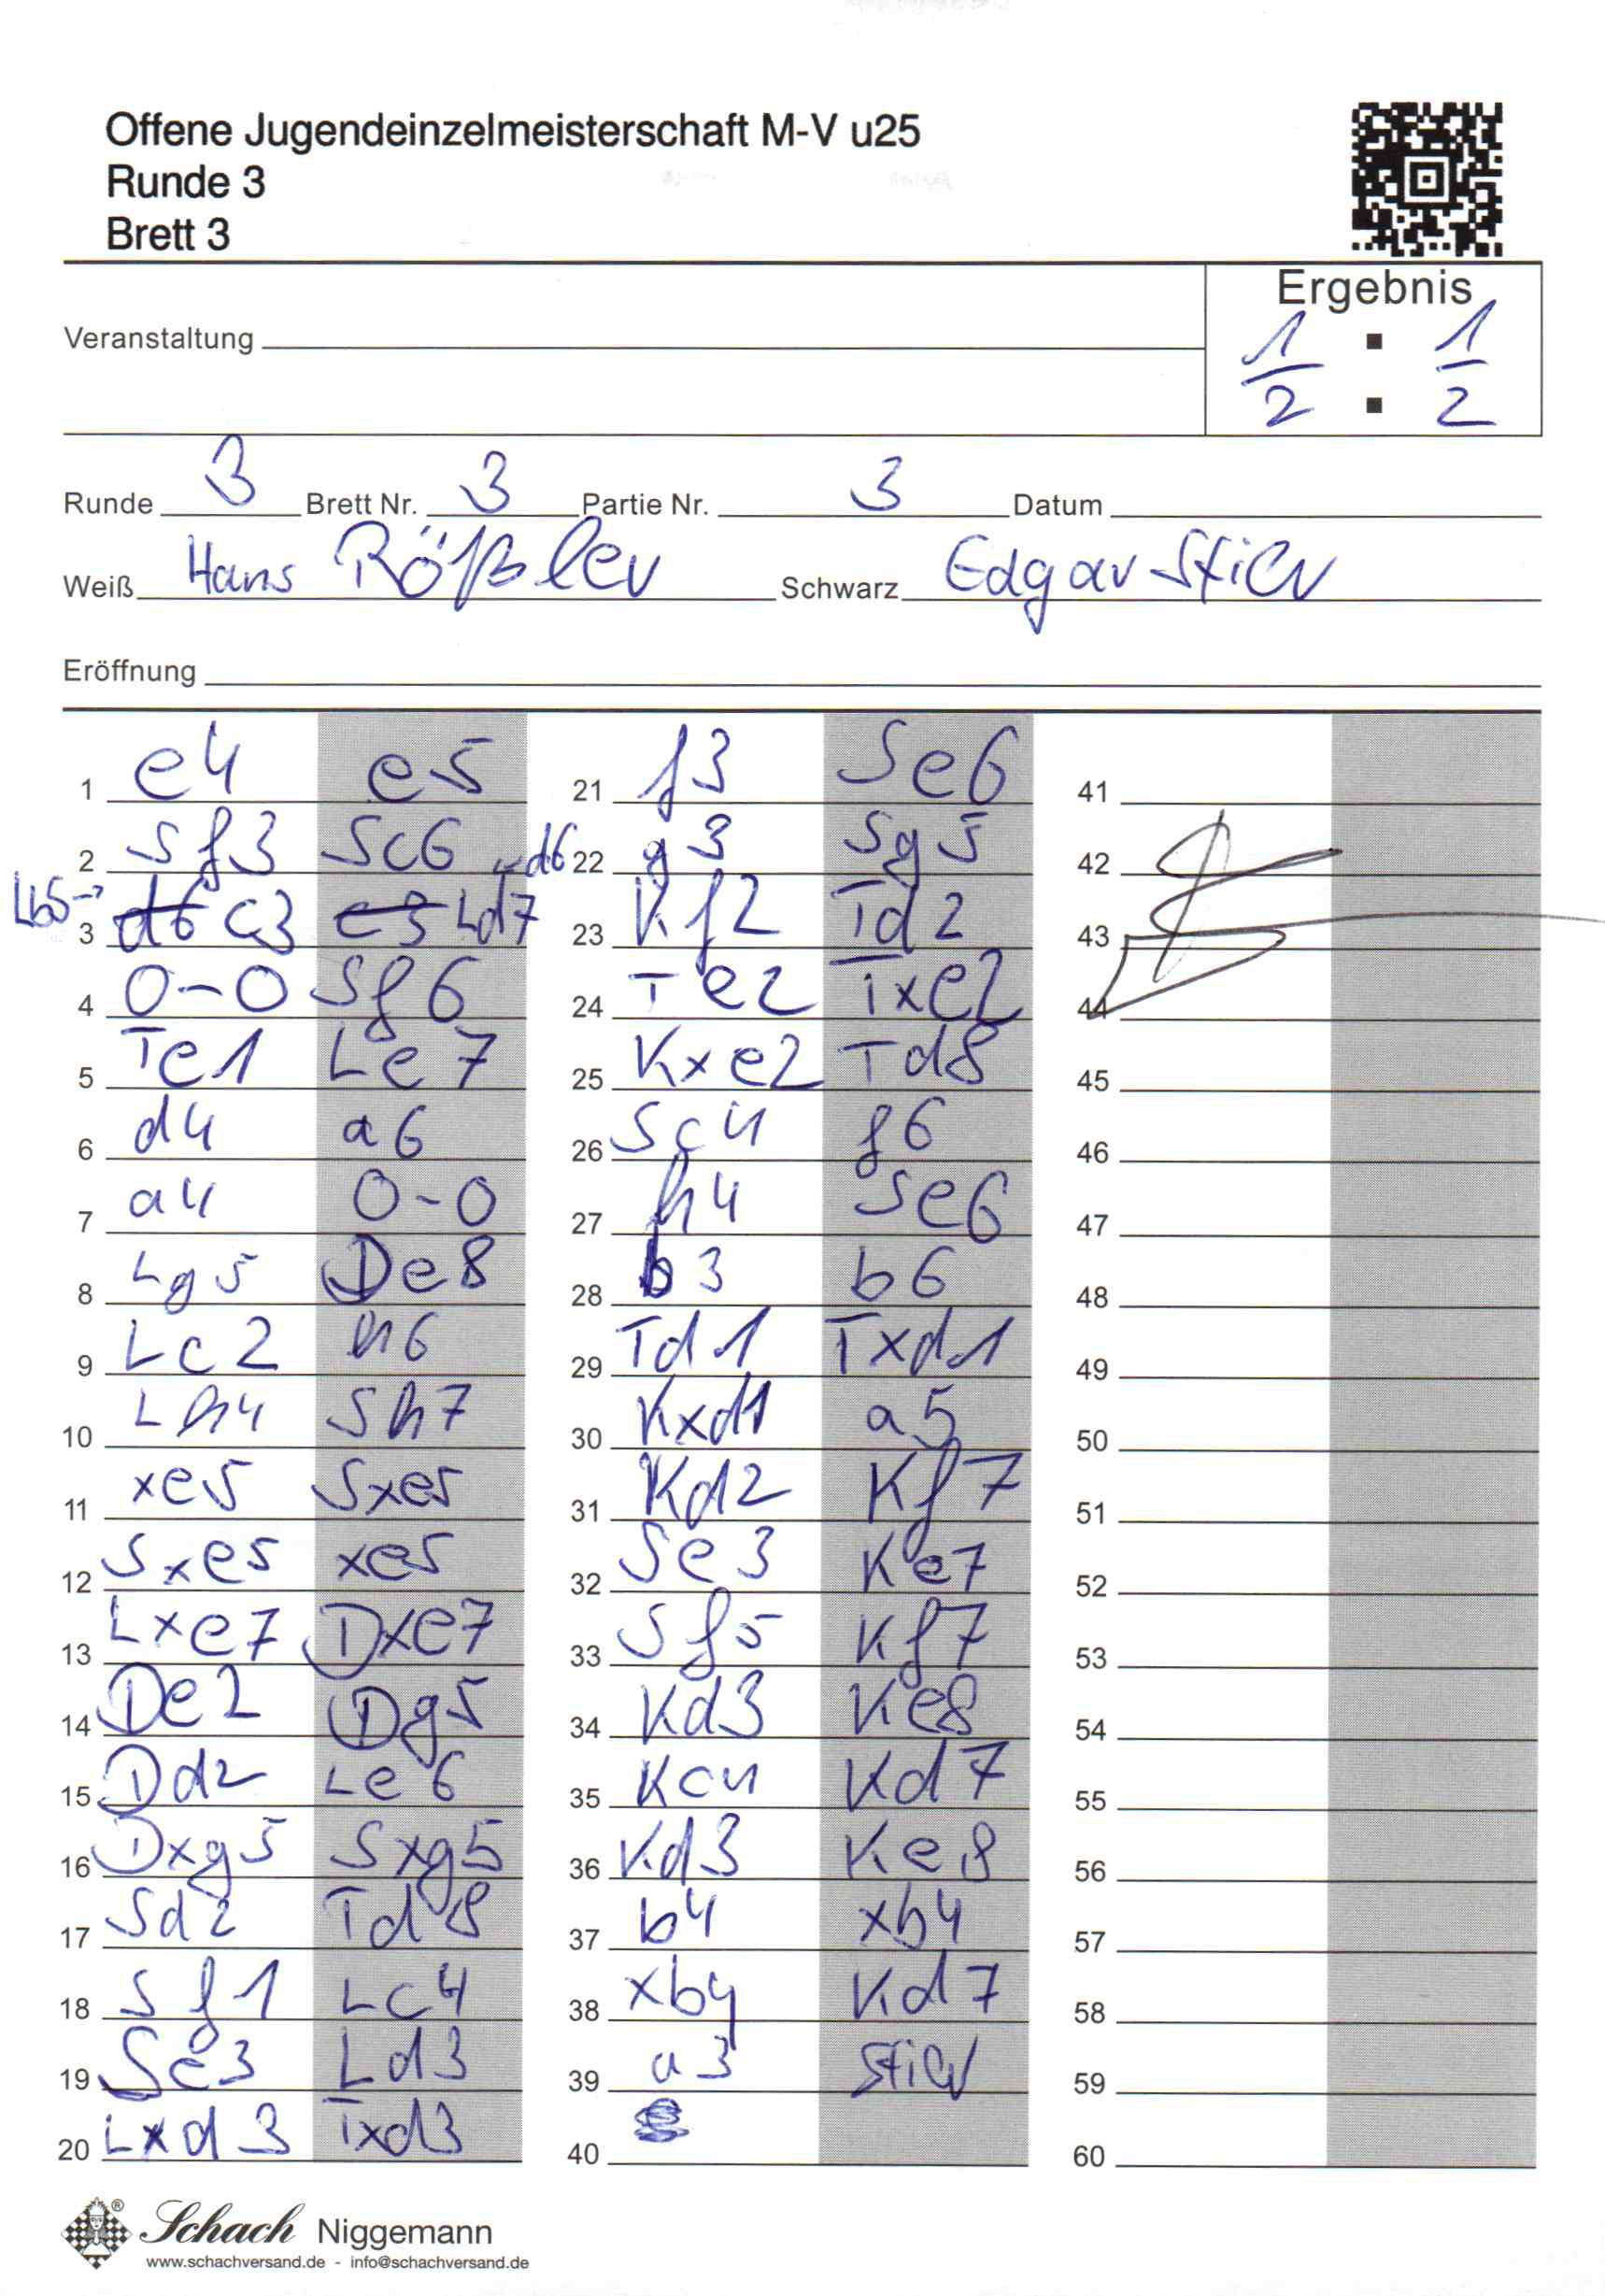 Offene Jugendeinzelmeisterschaft M-V u25
Runde 3
Brett 3
Ergebnis
Veranstaltung
1/2 : 1/2
Runde 3 Brett Nr. 3 Partie Nr. 3 Datum
Weiß Hans Rößler Schwarz Edgar Stier
Eröffnung
1 e4 e5
2 Sf3 Sc6 ←d6
Lb5→
3 d6 c3 c3 Ld7
4 0-0 Sf6
5 Te1 Le7
6 d4 a6
7 a4 0-0
8 Lg5 De8
9 Lc2 h6
10 Lh4 Sh7
11 xe5 Sxe5
12 Sxe5 xe5
13 Lxe7 Dxe7
14 De2 Dg5
15 Dd2 Le6
16 Dxg5 Sxg5
17 Sd2 Td8
18 Sf1 Lc4
19 Se3 Ld3
20 Lxd3 Txd3
21 f3 Se6
22 g3 Sg5
23 Kf2 Td2
24 Te2 Txe2
25 Kxe2 Td8
26 Sc4 f6
27 h4 Se6
28 b3 b6
29 Td1 Txd1
30 Kxd1 a5
31 Kd2 Kf7
32 Se3 Ke7
33 Sf5 Kf7
34 Kd3 Ke8
35 Kc4 Kd7
36 Kd3 Ke8
37 b4 xb4
38 xb4 Kd7
39 a3 Stier
40
41
42
43
44
45
46
47
48
49
50
51
52
53
54
55
56
57
58
59
60
Schach Niggemann
www.schachversand.de - info@schachversand.de